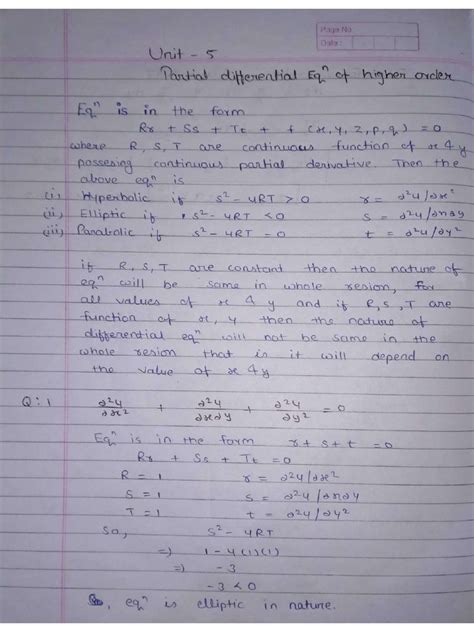 Page No.
Date:
Unit - 5
Partial differential Eqⁿ of higher order
Eqⁿ is in the form
Rr + Ss + Tt + f (x, y, z, p, q) = 0
where R, S, T are continuous function of x & y
possesing continuous partial derivative. Then the
above eqⁿ is
(i) Hyperbolic if s² - 4RT > 0 r = ∂²u/∂x²
(ii) Elliptic if s² - 4RT < 0 s = ∂²u/∂x∂y
(iii) Parabolic if s² - 4RT = 0 t = ∂²u/∂y²
if R, S, T are constant then the nature of
eqⁿ will be same in whole resion, for
all values of x & y and if R, S, T are
function of x, y then the nature of
differential eqⁿ will not be same in the
whole resion that is it will depend on
the value of x & y
Q:1 ∂²u/∂x² + ∂²u/∂x∂y + ∂²u/∂y² = 0
Eqⁿ is in the form r + s + t = 0
Rr + Ss + Tt = 0
R = 1 r = ∂²u/∂x²
S = 1 s = ∂²u/∂x∂y
T = 1 t = ∂²u/∂y²
So, s² - 4RT
=) 1 - 4(1)(1)
=) - 3
- 3 < 0
eqⁿ is elliptic in nature.